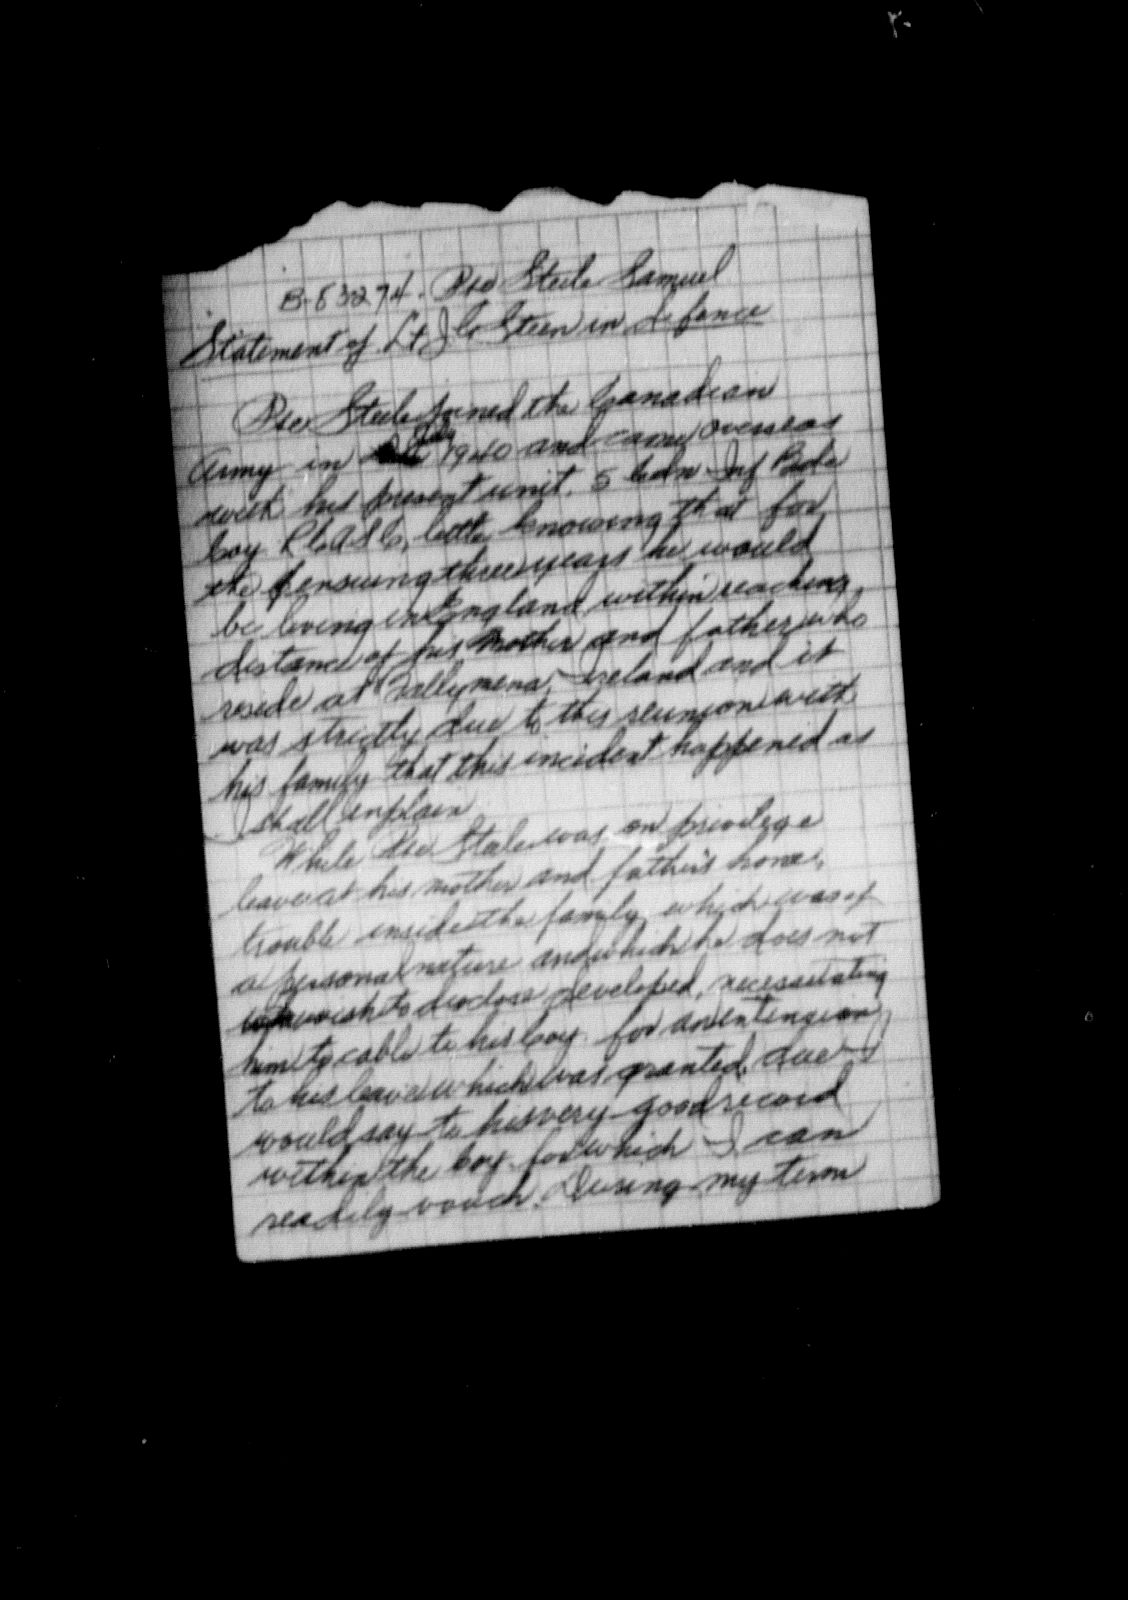 B-83274. Pte Steele Samuel
Statement of Lt J C Steen in defence
Pte Steele joined the Canadian
Army in July 1940 and came overseas
with his present unit. 5 Cdn Inf Bde
Coy RCASC, little knowing that for
the ensuing three years he would
be living in England within reaching
distance of his mother and father who
reside at Ballymena, Ireland and it
was strictly due to this reunion with
his family that this incident happened as
I shall explain
While Pte Steele was on privilege
leave at his mother and father's home,
trouble inside the family which was of
a personal nature and which he does not
wish to disclose developed, necessitating
him to cable to his Coy. for an extension
to his leave which was granted, due I
would say to his very good record
within the Coy for which I can
readily vouch. During my term